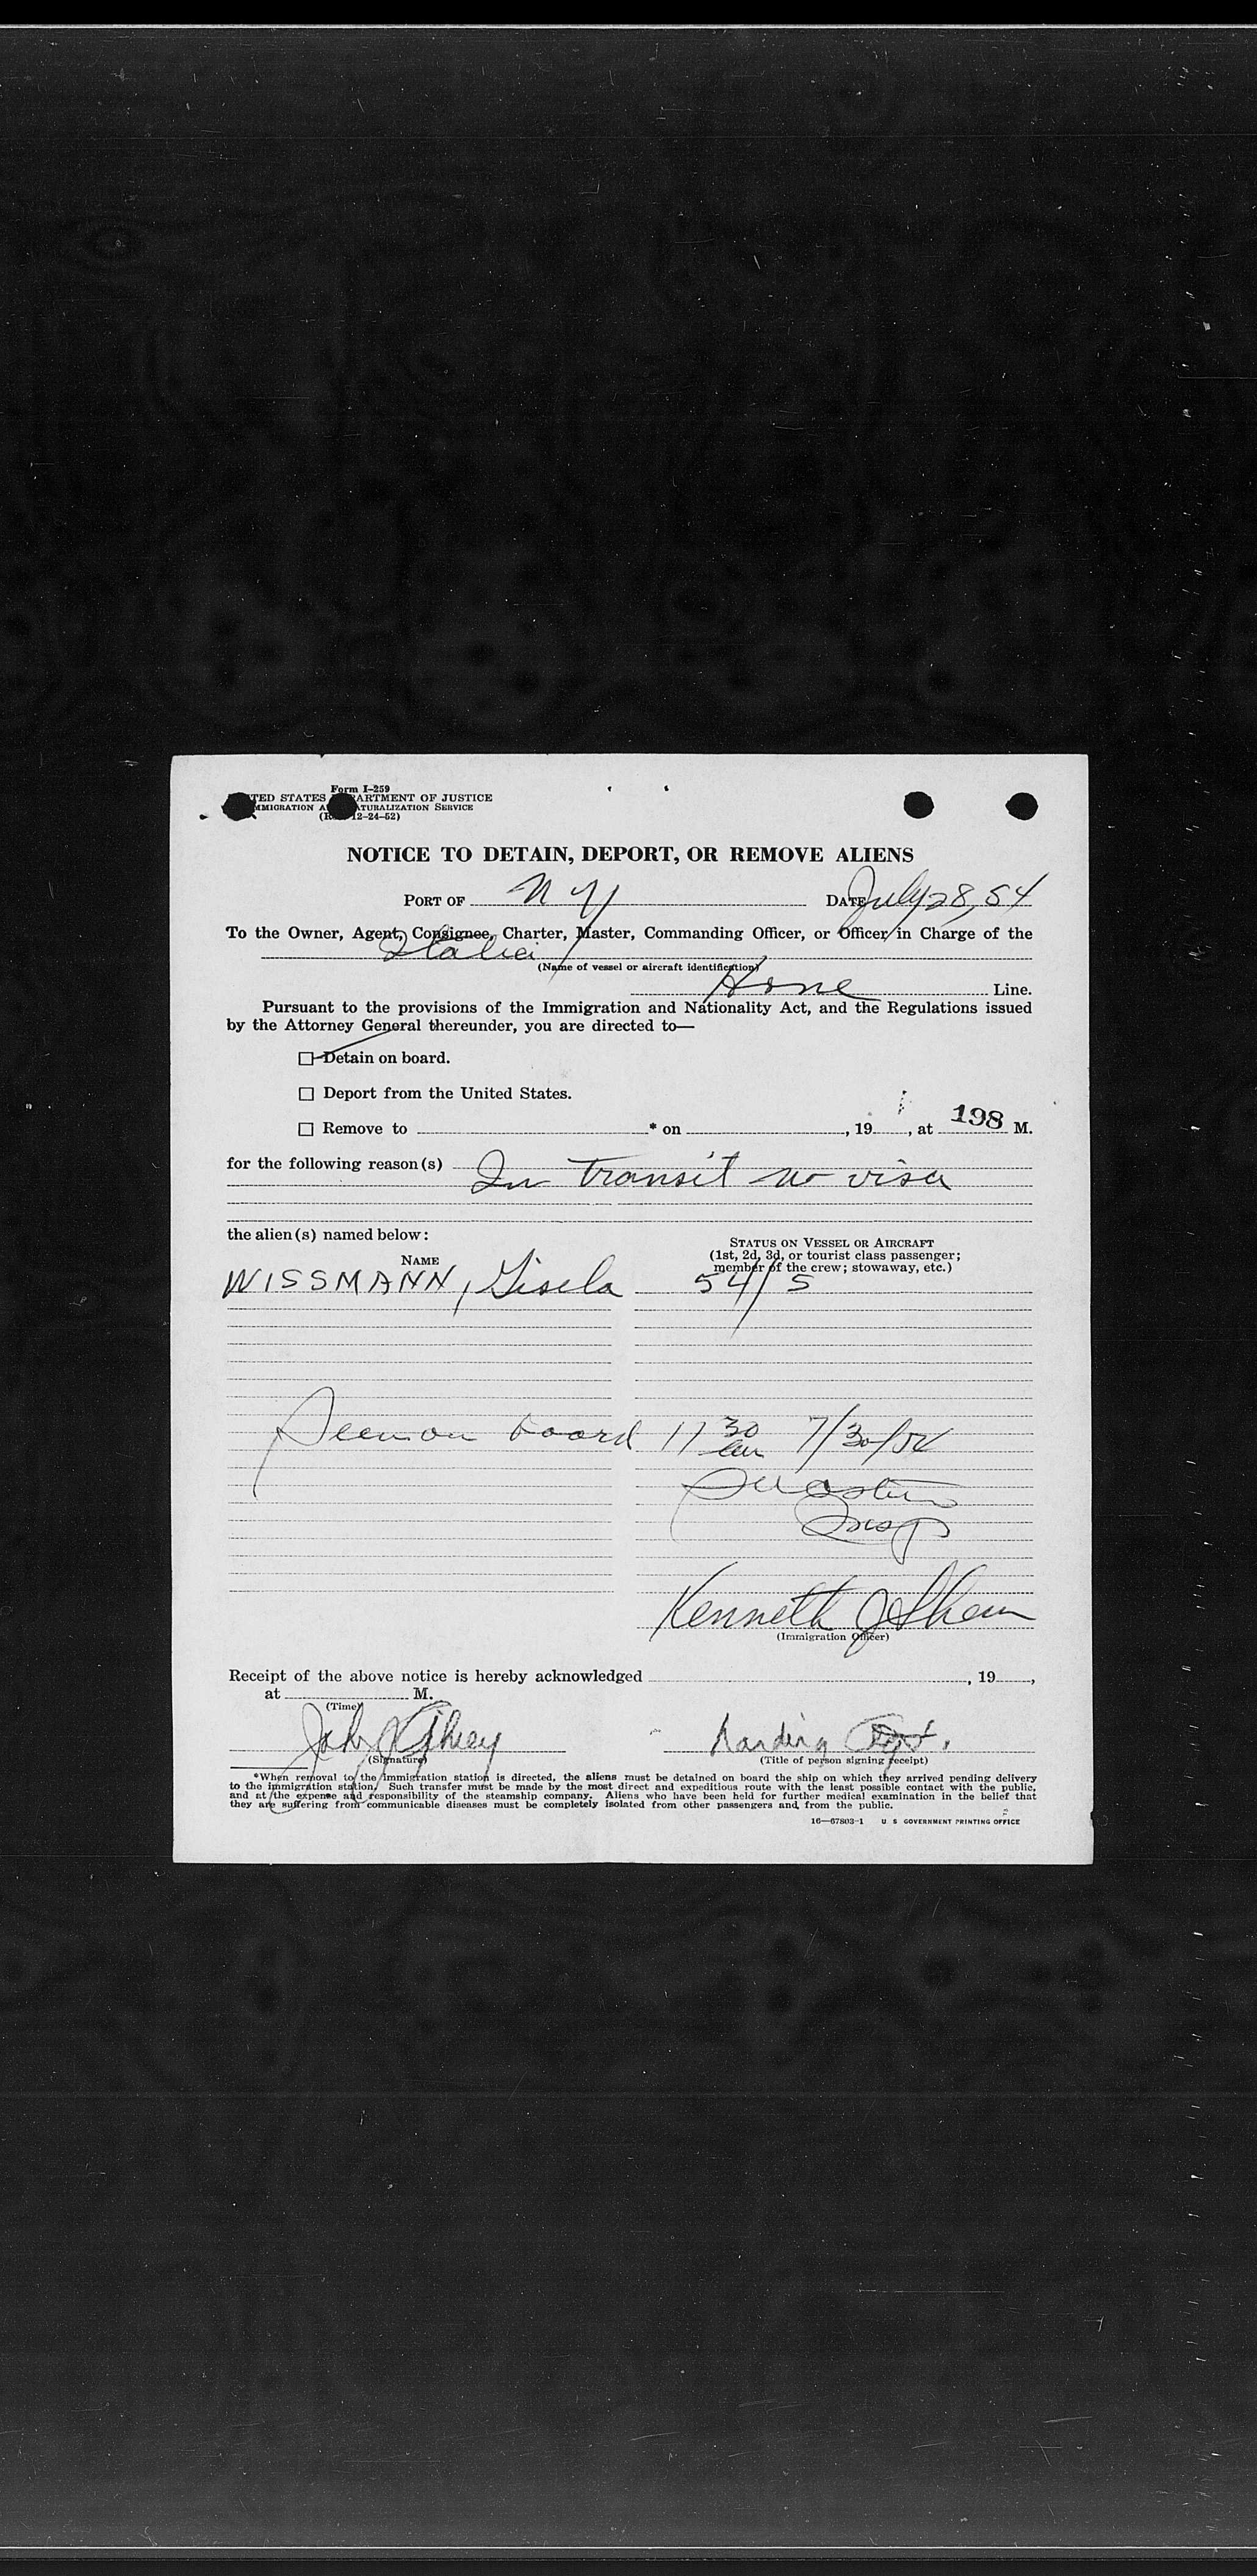 Form I-259
UNITED STATES DEPARTMENT OF JUSTICE
IMMIGRATION AND NATURALIZATION SERVICE
12-24-52)
NOTICE TO DETAIN, DEPORT, OR REMOVE ALIENS
PORT OF N Y DATE July 28, 54
To the Owner, Agent, Consignee, Charter, Master, Commanding Officer, or Officer in Charge of the
Italia
(Name of vessel or aircraft identification)
Home Line.
Pursuant to the provisions of the Immigration and Nationality Act, and the Regulations issued
by the Attorney General thereunder, you are directed to—
☐ Detain on board.
☐ Deport from the United States.
☐ Remove to * on , 19 , at 198 M.
for the following reason(s) In transit no visa
the alien(s) named below:
STATUS ON VESSEL OR AIRCRAFT
(1st, 2d, 3d, or tourist class passenger;
member of the crew; stowaway, etc.)
NAME
WISSMANN, Gisela 54/5
Seen on board 11 30 am 7/30/54
Insp
Kenneth J Shea
(Immigration Officer)
Receipt of the above notice is hereby acknowledged , 19 ,
at M.
(Time)
John J
(Signature)
Landing Agt.
(Title of person signing receipt)
*When removal to the immigration station is directed, the aliens must be detained on board the ship on which they arrived pending delivery
to the immigration station. Such transfer must be made by the most direct and expeditious route with the least possible contact with the public,
and at the expense and responsibility of the steamship company. Aliens who have been held for further medical examination in the belief that
they are suffering from communicable diseases must be completely isolated from other passengers and from the public.
16—67803-1 U S GOVERNMENT PRINTING OFFICE